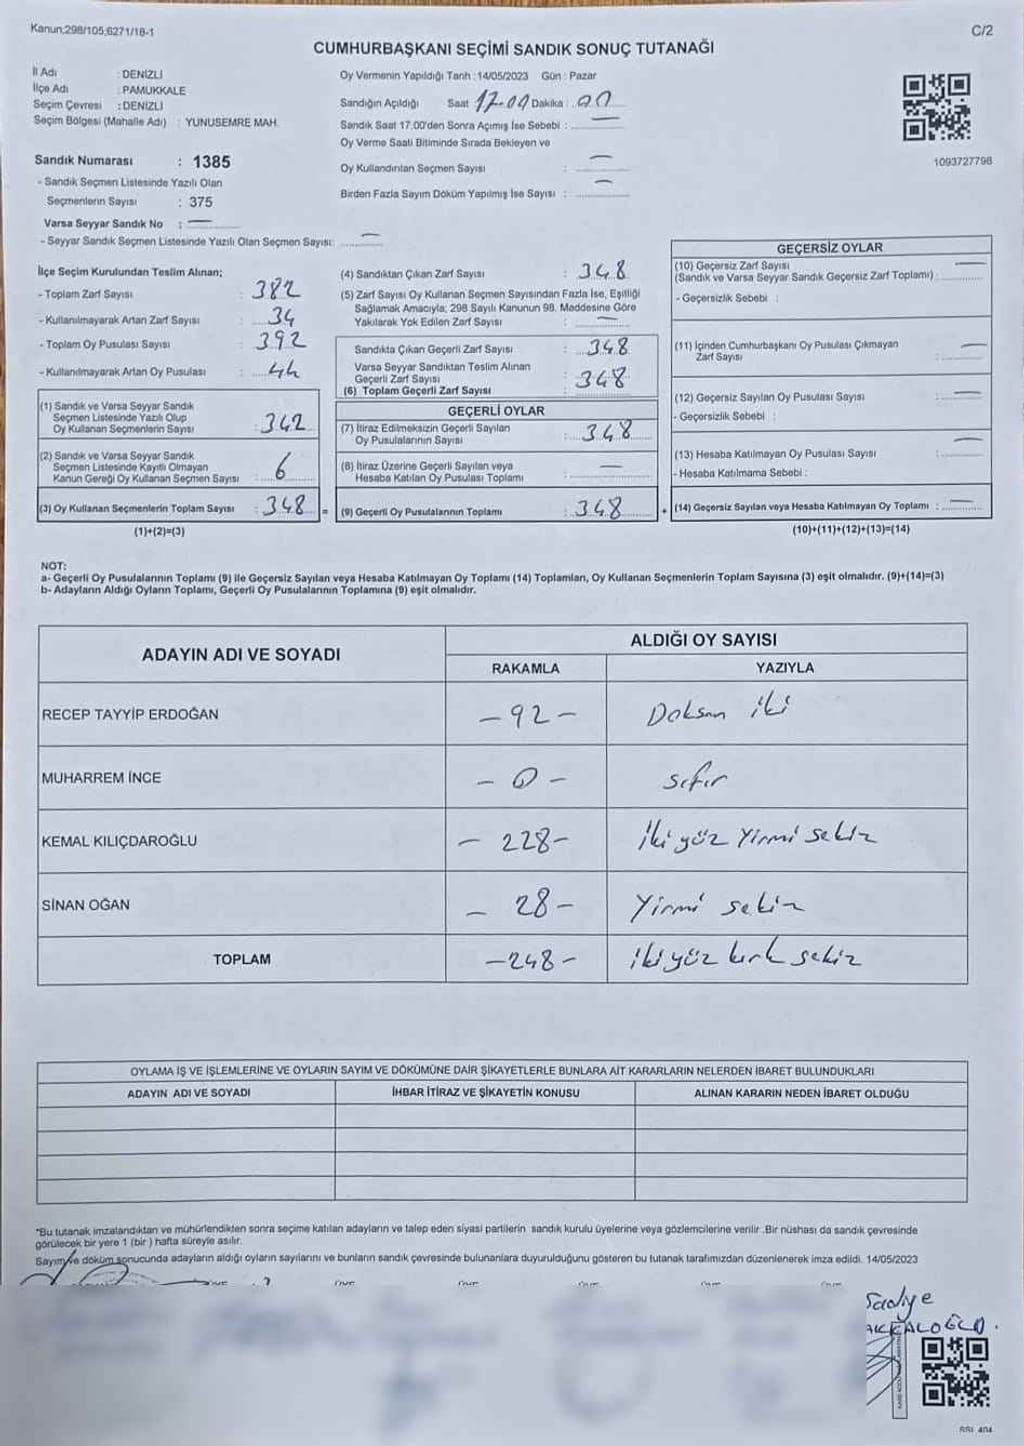 Kanun;298/105,6271/18-1
C/2
CUMHURBAŞKANI SEÇİMİ SANDIK SONUÇ TUTANAĞI
İl Adı : DENİZLİ
İlçe Adı : PAMUKKALE
Seçim Çevresi : DENİZLİ
Seçim Bölgesi (Mahalle Adı) : YUNUSEMRE MAH.
Oy Vermenin Yapıldığı Tarih : 14/05/2023 Gün : Pazar
Sandığın Açıldığı Saat 17.00 Dakika : 00
Sandık Saat 17.00'den Sonra Açımış İse Sebebi : —
Oy Verme Saati Bitiminde Sırada Bekleyen ve
Oy Kullandırılan Seçmen Sayısı : —
Birden Fazla Sayım Döküm Yapılmış İse Sayısı : —
1093727798
Sandık Numarası : 1385
- Sandık Seçmen Listesinde Yazılı Olan
Seçmenlerin Sayısı : 375
Varsa Seyyar Sandık No : —
- Seyyar Sandık Seçmen Listesinde Yazılı Olan Seçmen Sayısı: —
İlçe Seçim Kurulundan Teslim Alınan;
- Toplam Zarf Sayısı : 382
- Kullanılmayarak Artan Zarf Sayısı : 34
- Toplam Oy Pusulası Sayısı : 392
- Kullanılmayarak Artan Oy Pusulası : 44
(1) Sandık ve Varsa Seyyar Sandık
Seçmen Listesinde Yazılı Olup
Oy Kullanan Seçmenlerin Sayısı : 342
(2) Sandık ve Varsa Seyyar Sandık
Seçmen Listesinde Kayıtlı Olmayan
Kanun Gereği Oy Kullanan Seçmen Sayısı : 6
(3) Oy Kullanan Seçmenlerin Toplam Sayısı : 348 =
(1)+(2)=(3)
(4) Sandıktan Çıkan Zarf Sayısı : 348
(5) Zarf Sayısı Oy Kullanan Seçmen Sayısından Fazla İse, Eşitliği
Sağlamak Amacıyla; 298 Sayılı Kanunun 98. Maddesine Göre
Yakılarak Yok Edilen Zarf Sayısı : —
Sandıkta Çıkan Geçerli Zarf Sayısı : 348
Varsa Seyyar Sandıktan Teslim Alınan
Geçerli Zarf Sayısı :
(6) Toplam Geçerli Zarf Sayısı : 348
GEÇERLİ OYLAR
(7) İtiraz Edilmeksizin Geçerli Sayılan
Oy Pusulalarının Sayısı : 348
(8) İtiraz Üzerine Geçerli Sayılan veya
Hesaba Katılan Oy Pusulası Toplamı : —
(9) Geçerli Oy Pusulalarının Toplamı : 348 +
GEÇERSİZ OYLAR
(10) Geçersiz Zarf Sayısı
(Sandık ve Varsa Seyyar Sandık Geçersiz Zarf Toplamı) : —
- Geçersizlik Sebebi :
(11) İçinden Cumhurbaşkanı Oy Pusulası Çıkmayan
Zarf Sayısı : —
(12) Geçersiz Sayılan Oy Pusulası Sayısı : —
- Geçersizlik Sebebi :
(13) Hesaba Katılmayan Oy Pusulası Sayısı : —
- Hesaba Katılmama Sebebi :
(14) Geçersiz Sayılan veya Hesaba Katılmayan Oy Toplamı : —
(10)+(11)+(12)+(13)=(14)
NOT:
a- Geçerli Oy Pusulalarının Toplamı (9) ile Geçersiz Sayılan veya Hesaba Katılmayan Oy Toplamı (14) Toplamları, Oy Kullanan Seçmenlerin Toplam Sayısına (3) eşit olmalıdır. (9)+(14)=(3)
b- Adayların Aldığı Oyların Toplamı, Geçerli Oy Pusulalarının Toplamına (9) eşit olmalıdır.
ADAYIN ADI VE SOYADI
ALDIĞI OY SAYISI
RAKAMLA YAZIYLA
RECEP TAYYİP ERDOĞAN - 92 - Doksan iki
MUHARREM İNCE - 0 - sıfır
KEMAL KILIÇDAROĞLU - 228 - İki yüz Yirmi sekiz
SİNAN OĞAN - 28 - Yirmi sekiz
TOPLAM - 248 - iki yüz kırk sekiz
OYLAMA İŞ VE İŞLEMLERİNE VE OYLARIN SAYIM VE DÖKÜMÜNE DAİR ŞİKAYETLERLE BUNLARA AİT KARARLARIN NELERDEN İBARET BULUNDUKLARI
ADAYIN ADI VE SOYADI İHBAR İTİRAZ VE ŞİKAYETİN KONUSU ALINAN KARARIN NEDEN İBARET OLDUĞU
"Bu tutanak imzalandıktan ve mühürlendikten sonra seçime katılan adayların ve talep eden siyasi partilerin sandık kurulu üyelerine veya gözlemcilerine verilir .Bir nüshası da sandık çevresinde
görülecek bir yere 1 (bir ) hafta süreyle asılır.
Sayım ve döküm sonucunda adayların aldığı oyların sayılarını ve bunların sandık çevresinde bulunanlara duyurulduğunu gösteren bu tutanak tarafımızdan düzenlenerek imza edildi. 14/05/2023
Sadiye
AKKALOĞLU.